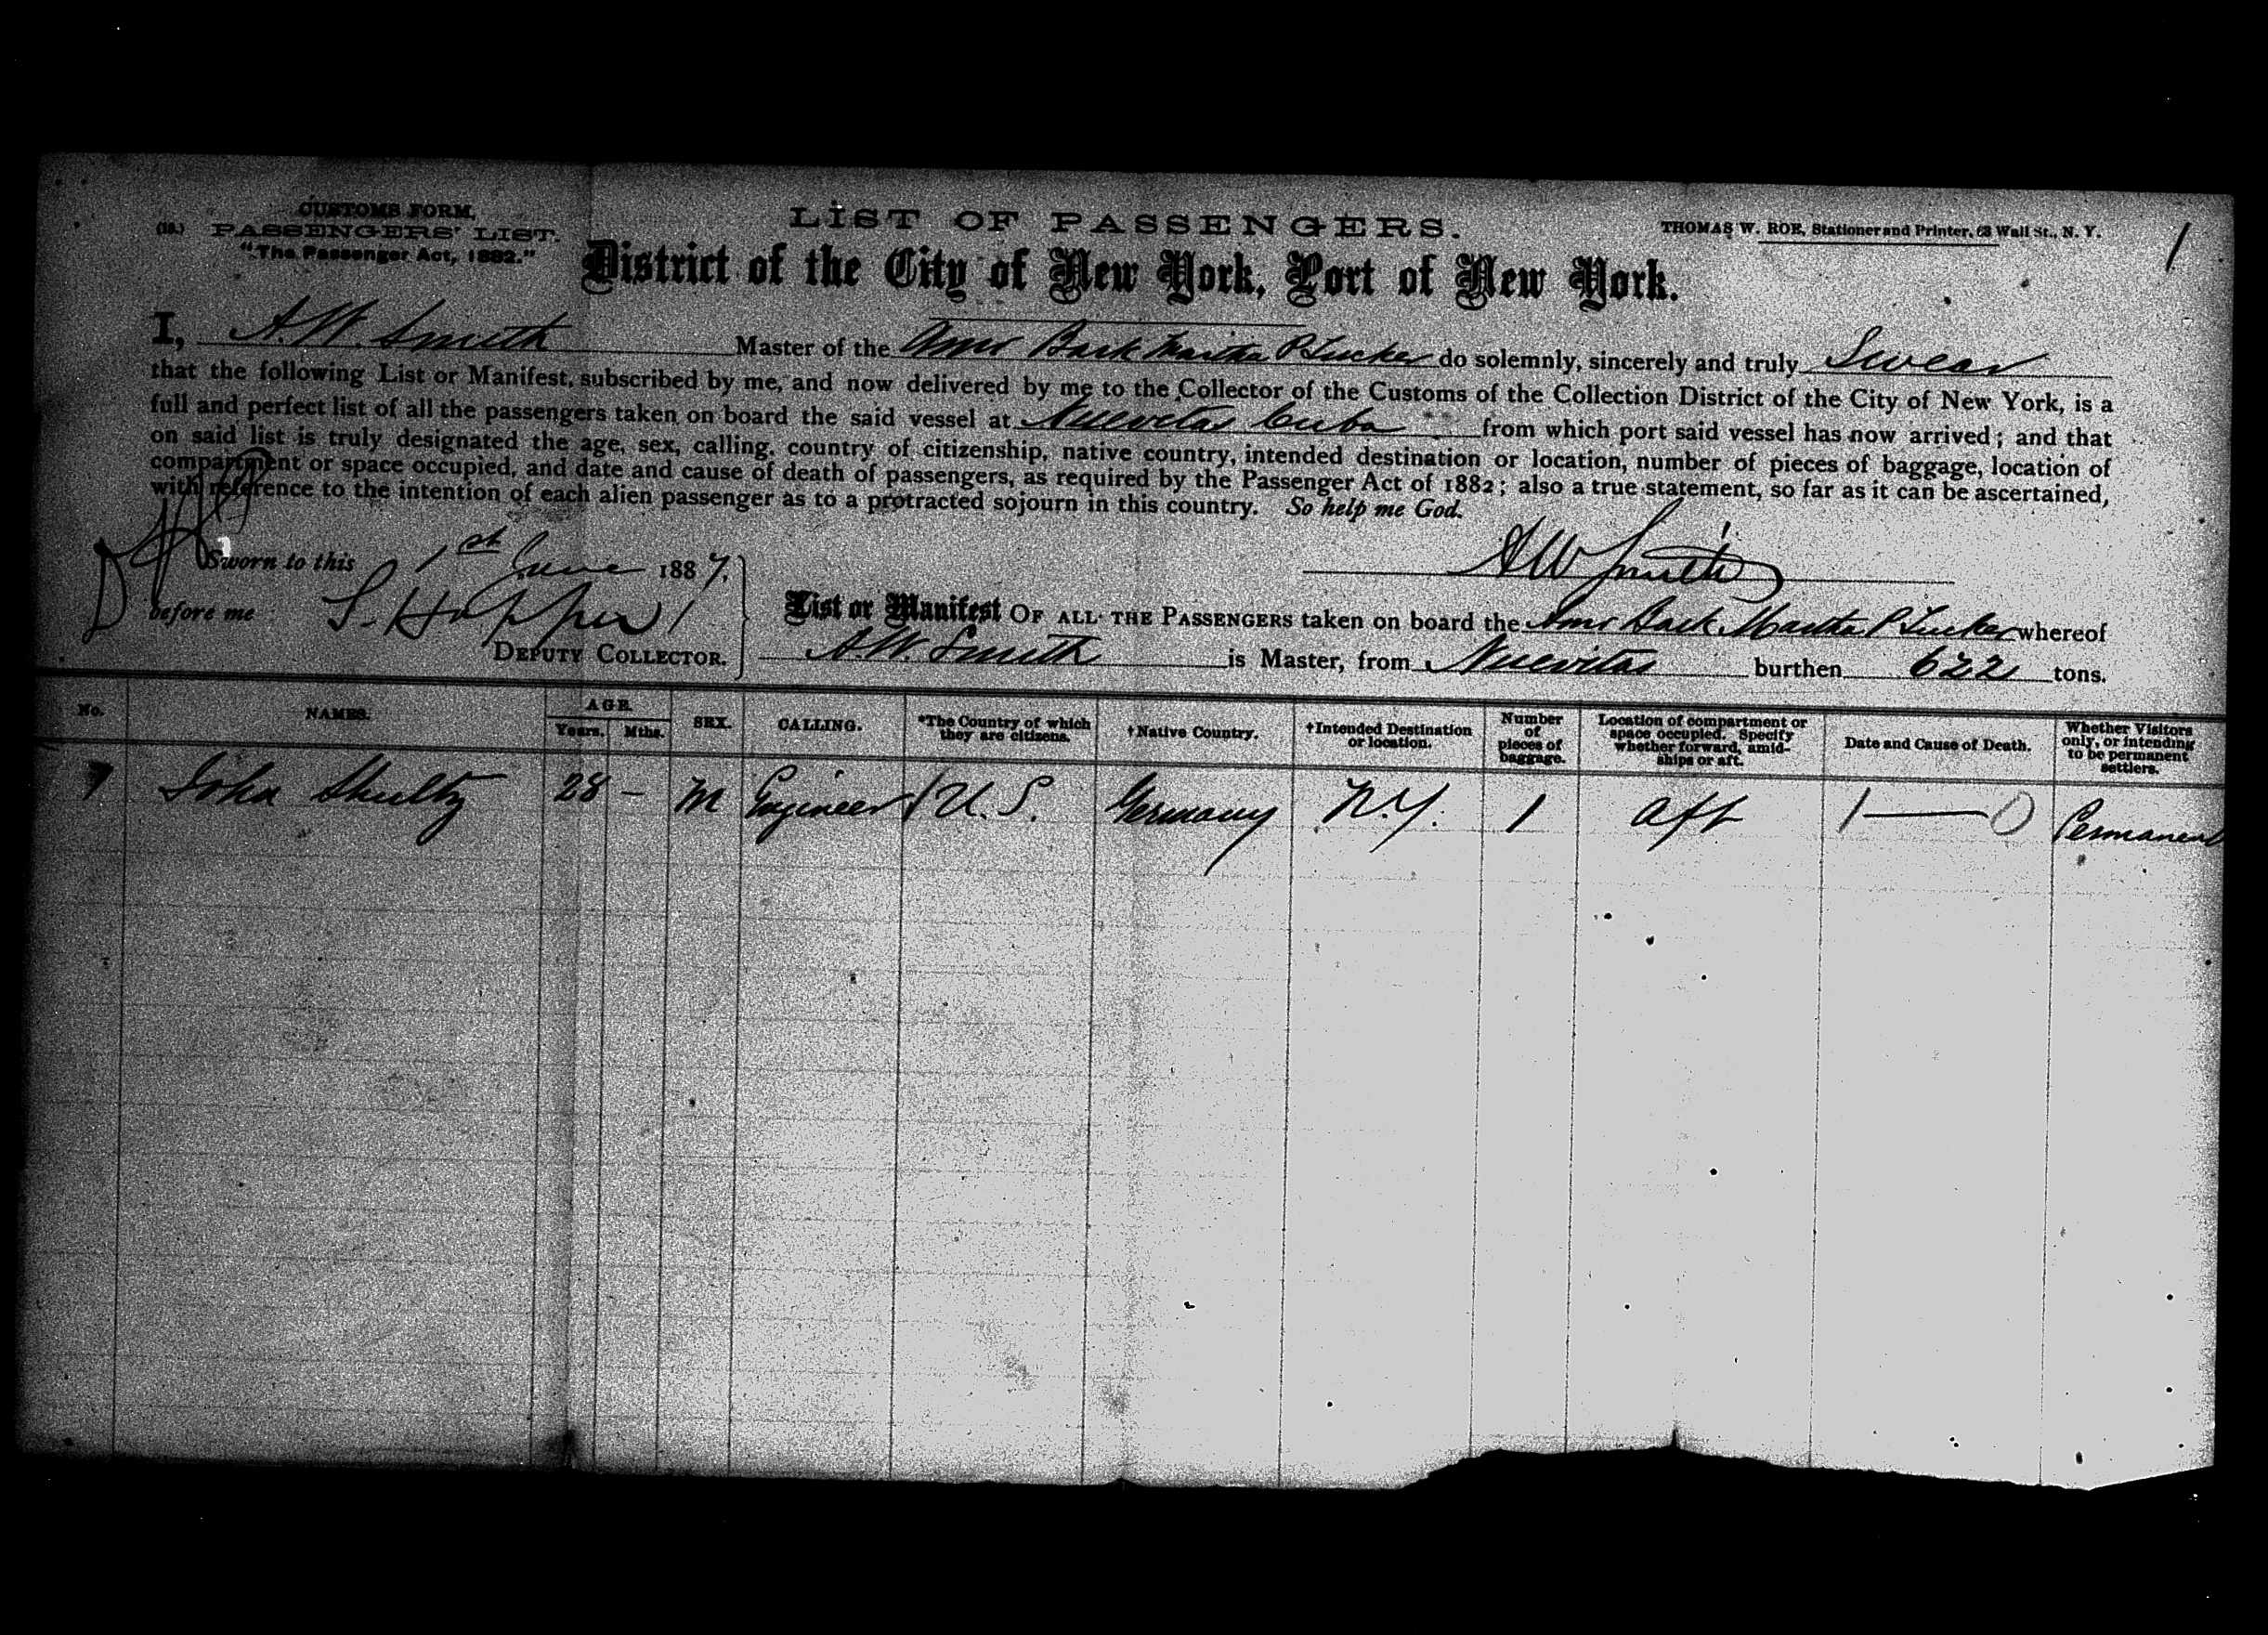 CUSTOMS FORM,
(18.) PASSENGERS' LIST.
"The Passenger Act, 1882."
LIST OF PASSENGERS.
THOMAS W. ROE, Stationer and Printer, 63 Wall St., N. Y.
1
District of the City of New York, Port of New York.
I, A. W. Smith Master of the Amr Bark Martha P Tucker do solemnly, sincerely and truly Swear
that the following List or Manifest, subscribed by me, and now delivered by me to the Collector of the Customs of the Collection District of the City of New York, is a
full and perfect list of all the passengers taken on board the said vessel at Nuevitas Cuba from which port said vessel has now arrived; and that
on said list is truly designated the age, sex, calling, country of citizenship, native country, intended destination or location, number of pieces of baggage, location of
compartment or space occupied, and date and cause of death of passengers, as required by the Passenger Act of 1882; also a true statement, so far as it can be ascertained,
with reference to the intention of each alien passenger as to a protracted sojourn in this country. So help me God.
Sworn to this 1st June 1887,
A W Smith
before me S. Hopper
DEPUTY COLLECTOR.
List or Manifest OF ALL THE PASSENGERS taken on board the Amr Bark Martha P Tucker whereof
A. W. Smith is Master, from Nuevitas burthen 622 tons.
No. NAMES. AGE. Years. Mths. SEX. CALLING. *The Country of which they are citizens. †Native Country. †Intended Destination or location. Number of pieces of baggage. Location of compartment or space occupied. Specify whether forward, amidships or aft. Date and Cause of Death. Whether Visitors only, or intending to be permanent settlers.
1 John Shultz 28 – M Engineer U. S. Germany N. Y. 1 aft 1 — 0 Permanent